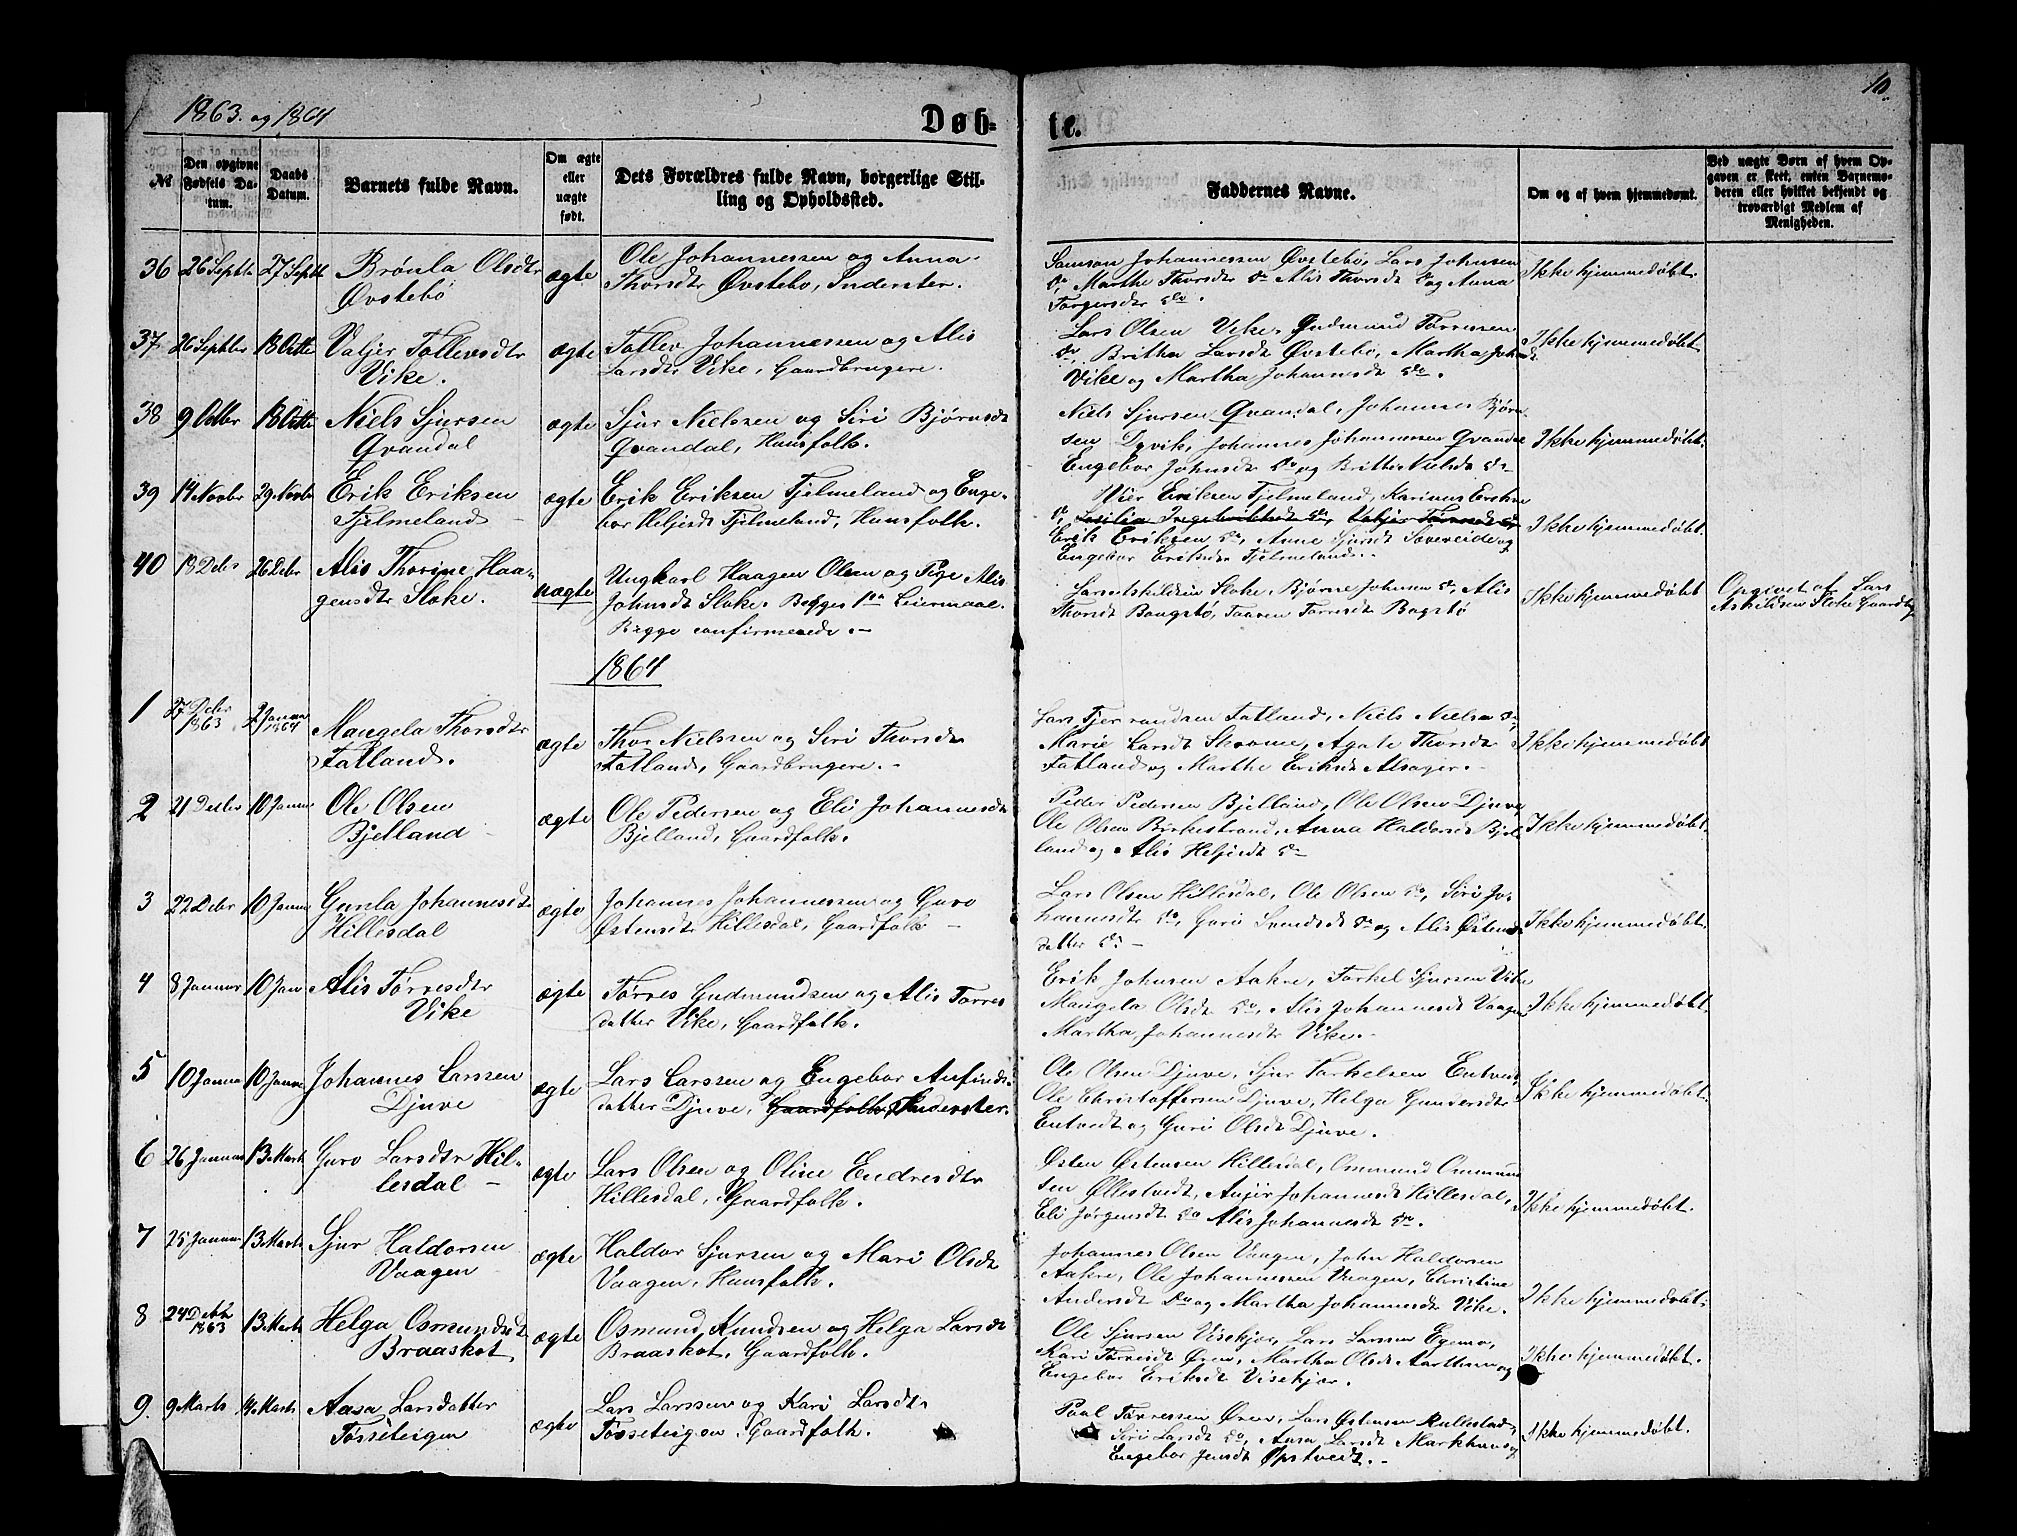 1863. og 1864
Døb=
te.
10
№
Den opgivne Fødsels Datum.
Daabs Datum.
Barnets fulde Navn.
Om ægte eller uægte født.
Dets Forældres fulde Navn, borgerlige Stilling og Opholdssted.
Faddernes Navne.
Om og af hvem hjemmedømt.
Ved uægte Børn af hvem Opgaven er skett, enten Barnemoderen eller hvilket bekjendt og troværdigt Medlem af Menigheden.
36 26 Septbr 27 Septbr Brønla Olsdtr
Øvstebø
ægte
Ole Johannessen og Anna
Thorsdtr Øvstebø, Inderster.
Samson Johannessen Øvstebø, Lars Johnsen
do, Marthe Thorsdtr do Alis Thorsdt do og Anna
Torgersdtr do.
Ikke hjemmedøbt.
37 26 Septbr 18 Octbr Valjer Tollevsdtr
Vike.
ægte
Tollev Johannessen og Alis
Larsdtr Vike, Gaardbrugere.
Lars Olsen Vike, Gudmund Tørressen
do, Britha Larsdt Øvstebø, Martha Johansdt
Vike og Martha Johannesdt do.
Ikke hjemmedøbt.
38 9 Octbr 18 Octbr Niels Sjursen
Qvandal
ægte
Sjur Nielssen og Siri Bjørnsdt
Qvandal, Huusfolk.
Niels Sjursen Qvandal, Johannes Bjørn
sen Dyvik, Johannes Johannessen Qvandal
Engebor Johnsdt do og Britha Nielsdt do
Ikke hjemmedøbt.
39 14 Novbr 29 Novbr Erik Eriksen
Fjelmeland
ægte
Erik Eriksen Fjelmeland og Enge-
bor Heljesdt Fjelmeland, Huusfolk.
Vier Eriksen Fjelmeland, Karinus Eriksen
do,
Erik Eriksen do, Anne Sjursdt Sævereide og
Engebor Eriksdtr Fjelmeland.
Ikke hjemmedøbt.
40 18 Debr 26 Debr Alis Thorine Haa-
gensdtr Sloke.
uægte
Ungkarl Haagen Olsen og Pige Alis
Johnsdt Sloke. Begges 1ste Leiermaal.
Begge confirmerede.
Lars Askildsen Sloke, Bjørne Johnsen do, Alis
Thorsdt Baugstø, Taaren Torresdt Bogstø
Ikke hjemmedøbt
Opgivet af Lars
Askildsen Sloke Gaardbr
1864
1 27 Debr
1863
2 Janua
1864
Maugela Thorsdtr
Fatland.
ægte
Thor Nielssen og Siri Thorsdt
Fatland, Gaardbrugere.
Lars Tjerrandsen Fatland, Niels Nielsen do,
Marie Larsdt Skromme, Agate Thorsdt
Fatland og Marthe Eriksdt Alsager.
Ikke hjemmedøbt
2 21 Decbr 10 Janua Ole Olsen
Bjelland
ægte
Ole Pedersen og Eli Johannesdt
Bjelland, Gaardfolk.
Peder Pedersen Bjelland, Ole Olsen Djuve,
Ole Olsen Birkestrand, Anna Haldorsdt Bjel-
land og Alis Heljesdt do
Ikke hjemmedøbt.
3 22 Debr 10 Janua Gunla Johannesdt
Hillesdal
ægte
Johannes Johannessen og Guro
Østensdtr Hillesdal, Gaardfolk
Lars Olsen Hillesdal, Ole Olsen do, Siri Jo-
hannesdtr do, Guri Svendsdt do og Alis Østens
datter do
Ikke hjemmedøbt.
4 8 Januar 10 Jan Alis Tørresdtr
Vike
ægte
Tørres Gudmundsen og Alis Torres
datter Vike, Gaardfolk.
Erik Johnsen Aakre, Torkel Sjursen Vike
Maugela Olsdt do, Alis Johannesdt Vaagen
Martha Johannesdtr Vike.
Ikke hjemmedøbt.
5 10 Janua 10 Janua Johannes Larssen
Djuve
ægte
Lars Larssen og Engebor Anfinds-
datter Djuve, Gaardfolk, Inderster.
Ole Olsen Djuve, Sjur Torkelsen Entvedt,
Ole Christoffersen Djuve, Helga Gundersdtr
Entvedt og Guri Olsdt Djuve.
Ikke hjemmedøbt.
6 26 Januar 13 Marts Guro Larsdtr Hil-
lesdal
ægte
Lars Olsen og Oline Endresdtr
Hillesdal, Gaardfolk.
Østen Østensen Hillesdal, Ommund Ommund
sen Øllestvedt, Anjer Johannesdt Hillesdal,
Eli Jørgensdt do Alis Johannesdt do.
Ikke hjemmedøbt.
7 25 Januar 13 Marts Sjur Haldorsen
Vaagen
ægte
Haldor Sjursen og Mari Olsdt
Vaagen, Huusfolk.
Johannes Olsen Vaagen, John Haldorsen
Aakre, Ole Johannessen Vaagen, Christine
Andersdt do og Martha Johannesdt Vike.
Ikke hjemmedøbt.
8 24 Decbr
1863
13 Marts Helga Osmundsdt
Braaskot
ægte
Osmund Knudsen og Helga Larsdt
Braaskot, Gaardfolk.
Ole Sjursen Viskjør, Lars Larssen Egemo,
Kari Tørresdt Øren, Martha Olsdt Aarthun og
Engebor Eriksdt Viskjør.
Ikke hjemmedøbt.
9. 9 Marts 14 Marts Aasa Larsdatter
Fosseteigen
ægte
Lars Larssen og Kari Larsdt
Fosseteigen, Gaardfolk.
Paul Tørressen Øren, Lars Østensen Rullestad,
Siri Larsdt do, Anna Larsdt Markhuus og
Engebor Jensdt Opstvedt.
Ikke hjemmedøbt.